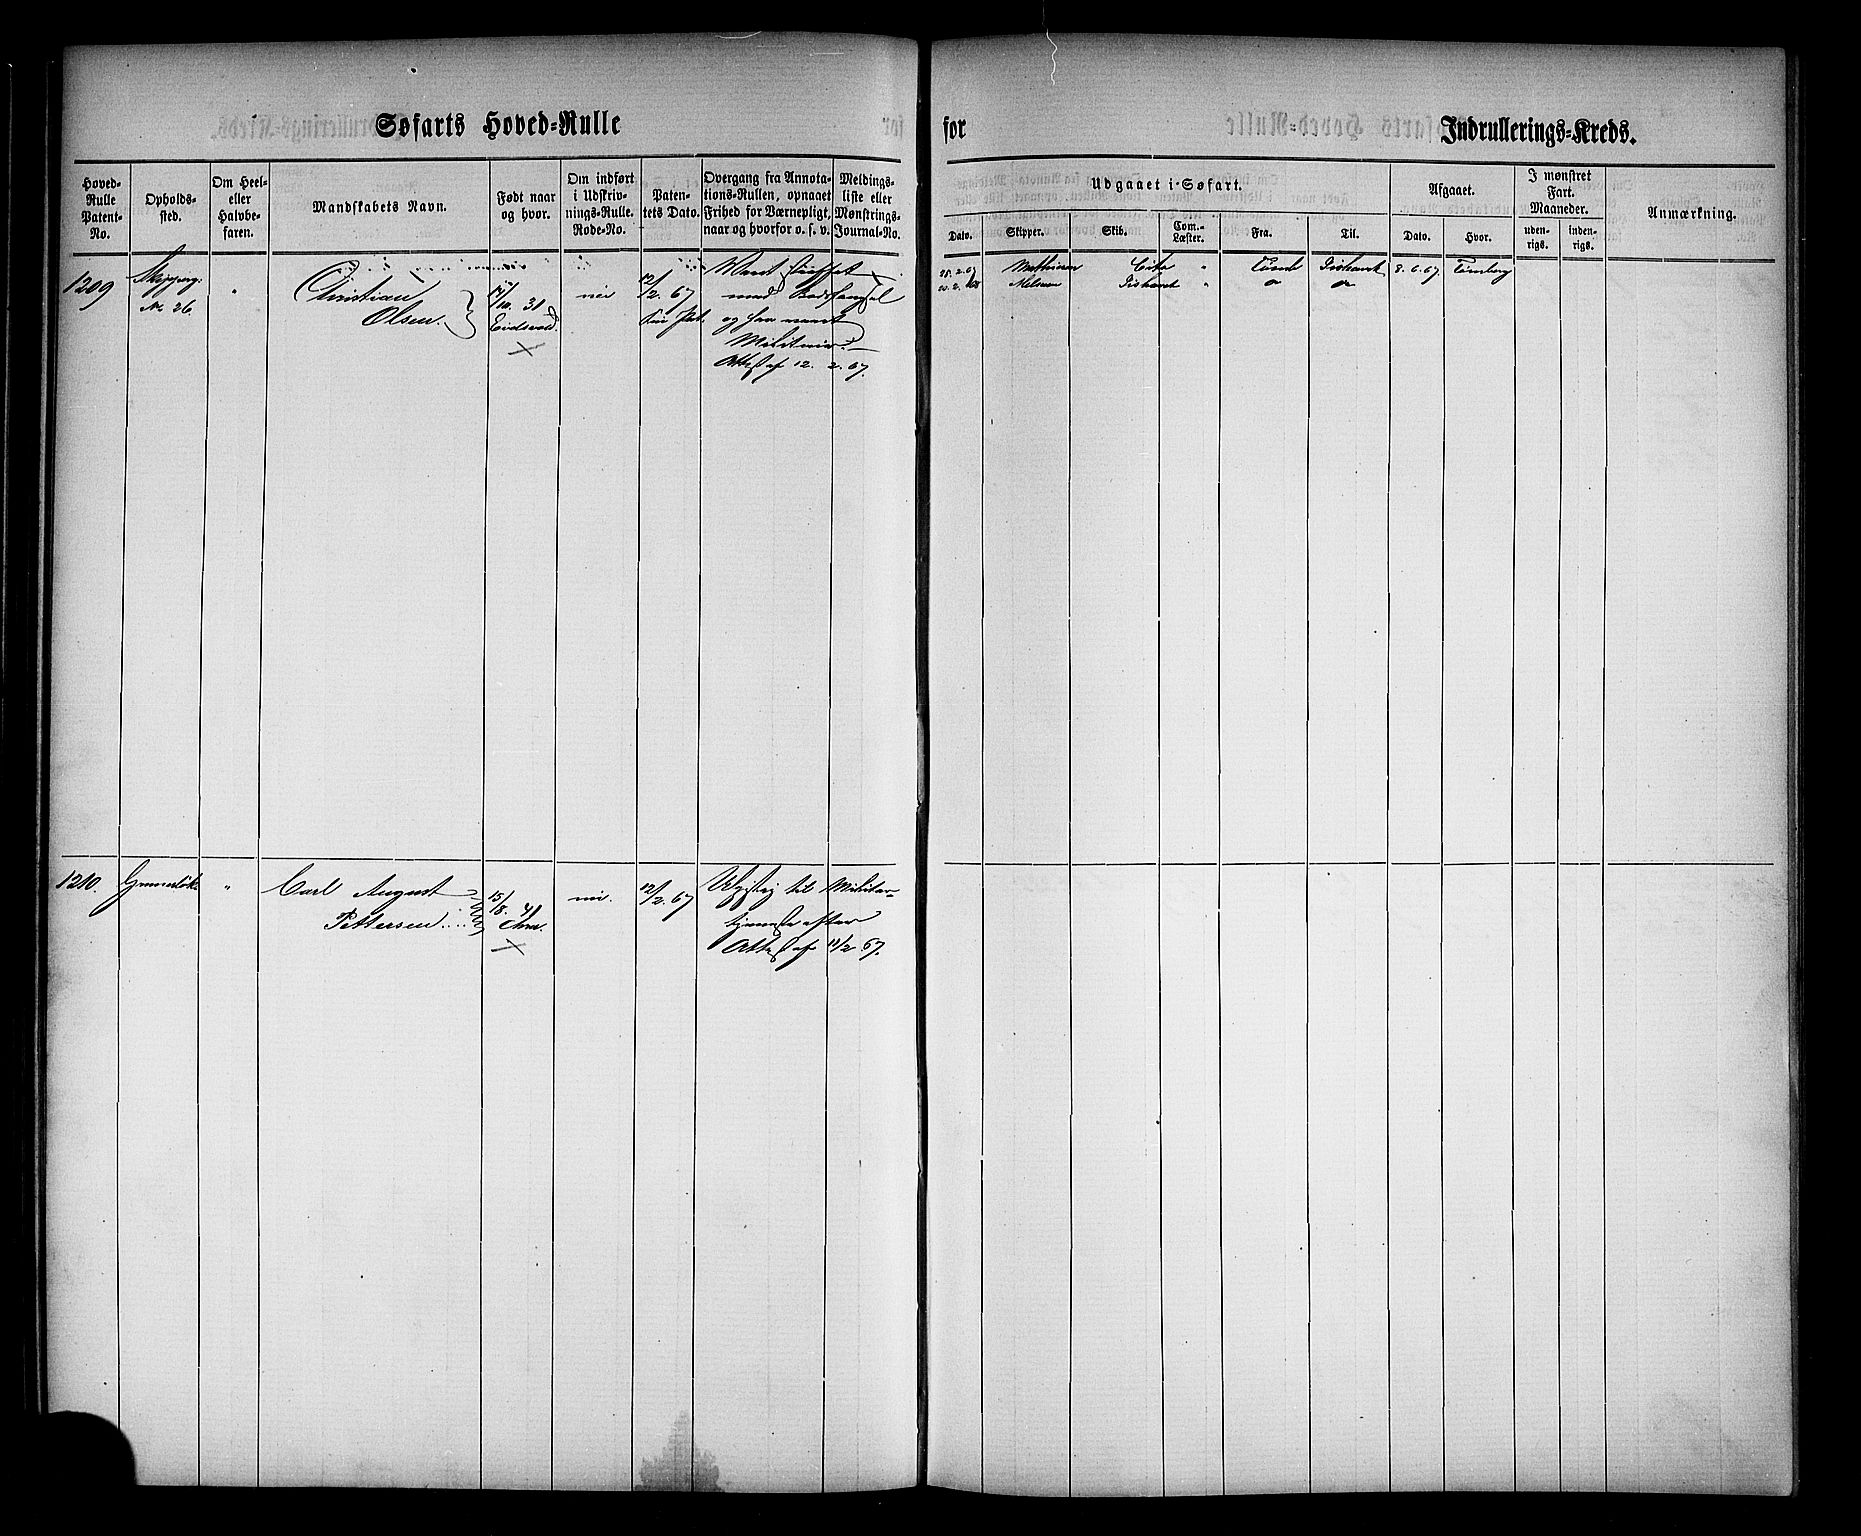 Søfarts Hoved-Rulle
for
Indrullerings-Kreds.
Hoved-
Rulle
Patent-
No.
Opholds-
sted.
Om Heel-
eller
Halvbe-
faren.
Mandskabets Navn.
Født naar
og hvor.
Om indført
i Udskriv-
nings-Rulle.
Rode-No.
Paten-
tets Dato.
Overgang fra Annota-
tions-Rullen, opnaaet
Frihed for Værnepligt,
naar og hvorfor o. s. v.
Meldings-
liste eller
Mønstrings-
Journal-No.
Udgaaet i Søfart.
Dato.
Skipper.
Skib.
Com.-
Læster.
Fra.
Til.
Afgaaet.
Dato.
Hvor.
I mønstret
Fart.
Maaneder.
uden-
rigs.
inden-
rigs.
Anmærkning.
1209
Skipperg:
No 26.
"
Christian
Olsen.
/10. 31
Eidsvold.
12/2. 67
med
og har
Attest af 12. 2. 67.
25. 2. 67
Mathisen
"
Ishavet
8. 6. 67
Tønsberg
Nilsen
Ishavet
"
1210.
"
Carl August
Pettersen
15/8. 41
Chra.
12/2. 67
til Militær-
tjeneste efter
Attest af 11/2 67.